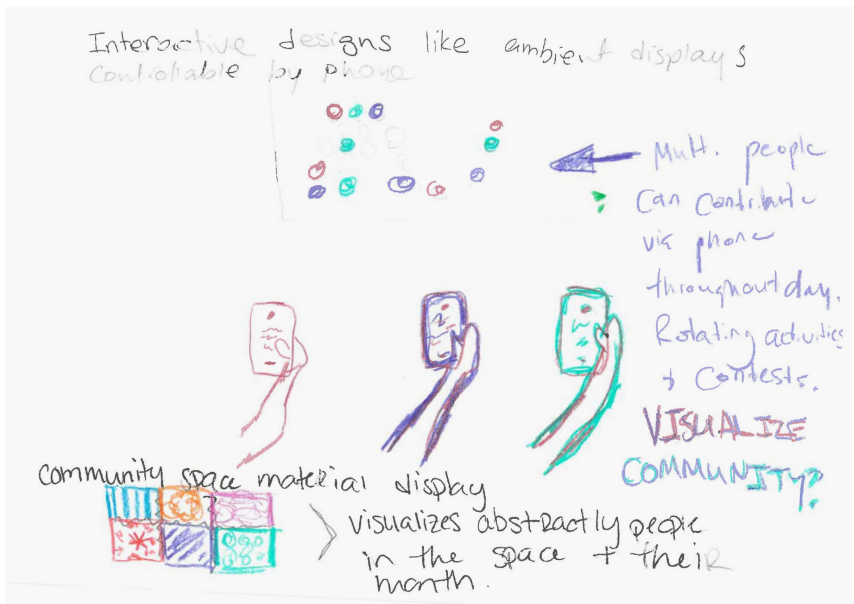 Interactive designs like ambient displays
controllable by phone
Mult. people
can contribute
via phone
throughout day.
Rotating activities
+ contests.
VISUALIZE
COMMUNITY?
community space material display
visualizes abstractly people
in the space + their
month.